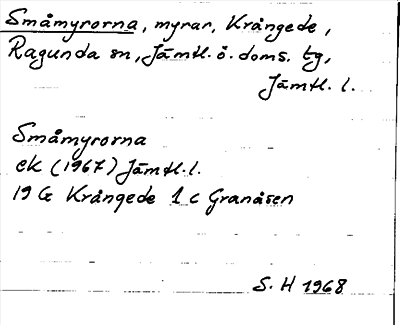 Småmyrorna, myrar, Krångede,
Ragunda sn, Jämtl. ö. doms. tg,
Jämtl. l.
Småmyrorna
ek (1967) Jämtl. l.
19 G Krångede 1 c Granåsen
S. H 1968